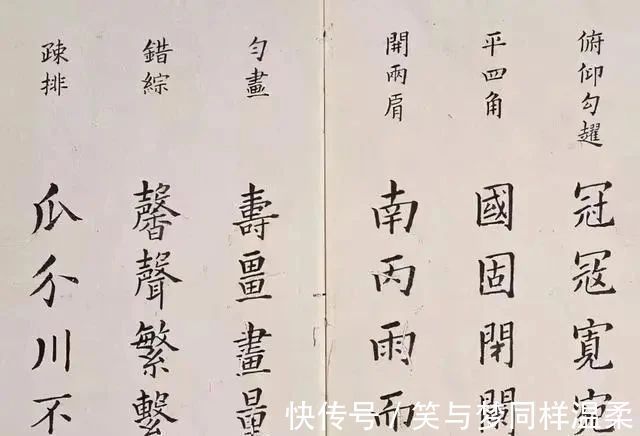 俯仰勾趯
冠冦寬
平四角
國固閉
開兩肩
南丙雨而
勻畫
壽畺畫量
錯綜
馨聲繁繫
踈排
瓜介川不
快传号 / 笑与梦同样温柔